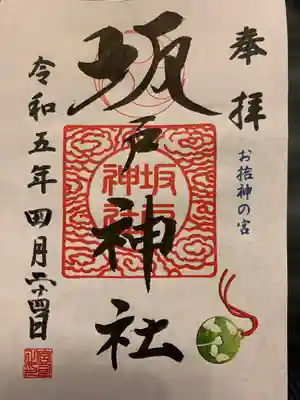 奉拝
お拾神の宮
坂戸神社
坂戸神社
令和五年四月二十四日